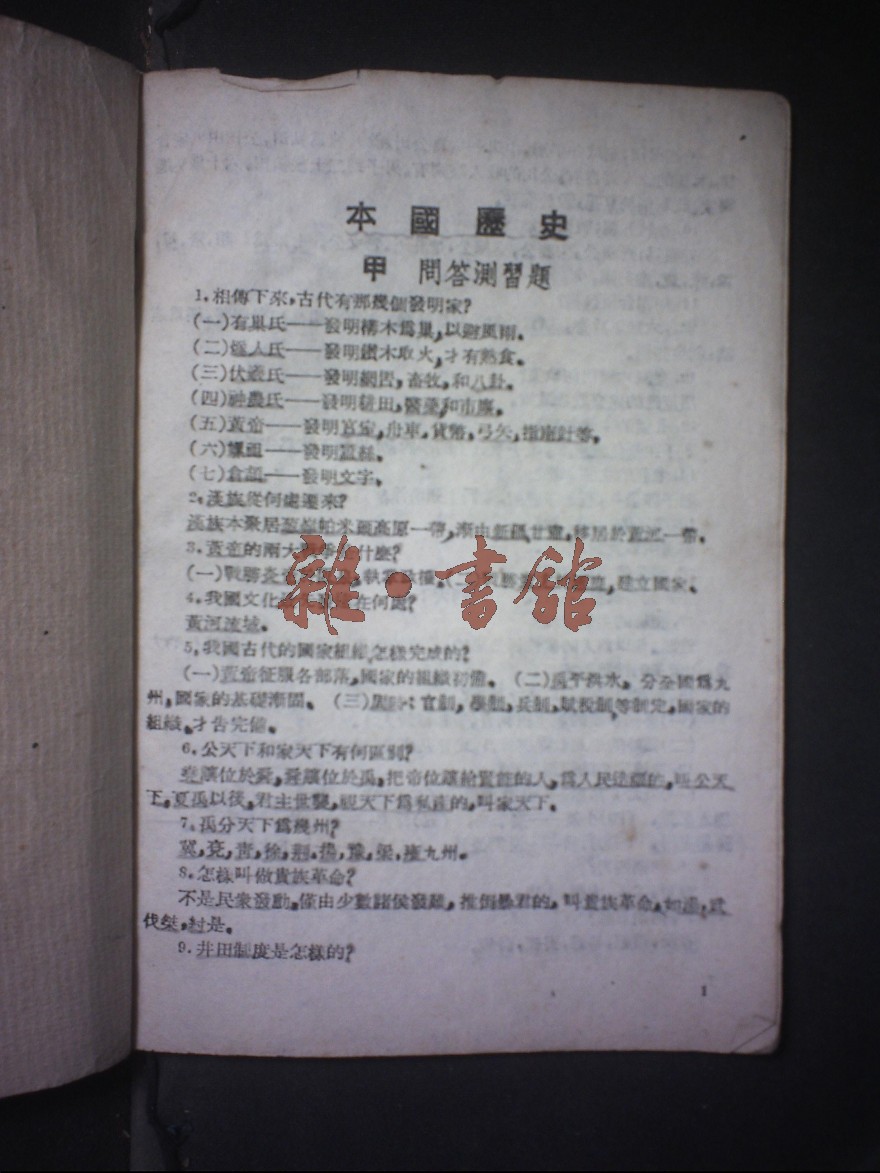 本國歷史
甲 問答測習題
1.相傳下來,古代有那幾個發明家?
(一)有巢氏——發明構木爲巢,以避風雨。
(二)燧人氏——發明鑽木取火,才有熟食。
(三)伏羲氏——發明網罟,畜牧,和八卦。
(四)神農氏——發明耕田,醫藥,和市廛。
(五)黃帝——發明宮室,舟車,貨幣,弓矢,指南針等。
(六)嫘祖——發明蠶絲。
(七)倉頡——發明文字。
2.漢族從何處遷來?
漢族本聚居葱嶺帕米爾高原一帶,漸由新疆,甘肅,移居於黃河一帶。
3.黃帝的兩大戰爭是什麼?
(一)戰勝 建立國家。
4.我國文化 在何處?
黃河流域。
5.我國古代的國家組織,怎樣完成的?
(一)黃帝征服各部落,國家的組織初備。 (二)禹平洪水,分全國爲九
州,國家的基礎漸固。 (三) 官制,學制,兵制,賦稅制,等制定,國家的
組織,才告完備。
6.公天下和家天下有何區別?
堯讓位於舜,舜讓位於禹,把帝位讓給賢能的人,爲人民造福的,叫公天
下。夏禹以後,君主世襲,視天下爲私產的,叫家天下。
7.禹分天下爲幾州?
冀,兗,靑,徐,荊,揚,豫,梁,雍九州。
8.怎樣叫做貴族革命?
不是民衆發動,僅由少數諸侯發難,推倒暴君的,叫貴族革命,如湯,武
伐桀,紂是。
9.井田制度是怎樣的?
1
雜·書館